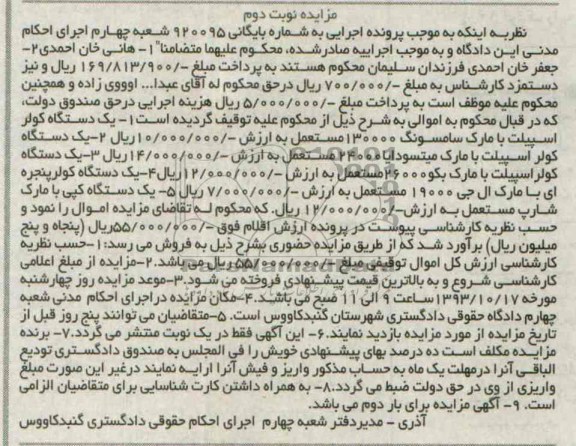 مزایده نوبت دوم
نظربه اینکه به موجب پرونده اجرایی به شماره بایگانی ۹۲۰۰۹۵ شعبه چهارم اجرای احکام
مدنی این دادگاه و به موجب اجراییه صادرشده، محکوم علیهما متضامنا ۱- هانی خان احمدی ۲-
جعفر خان احمدی فرزندان سلیمان محکوم هستند به پرداخت مبلغ -/۱۶۹/۸۱۳/۹۰۰ ریال و نیز
دستمزد کارشناس به مبلغ -/۷۰۰/۰۰۰ ریال درحق محکوم له آقای عبدا... اوووی زاده و همچنین
محکوم علیه موظف است به پرداخت مبلغ -/۵/۰۰۰/۰۰۰ ریال هزینه اجرایی درحق صندوق دولت،
که در قبال محکوم به اموالی به شرح ذیل از محکوم علیه توقیف گردیده است ۱- یک دستگاه کولر
اسپیلت با مارک سامسونگ ۱۳۰۰۰۰ مستعمل به ارزش -/۱۰/۰۰۰/۰۰۰ ریال ۲-یک دستگاه
کولر اسپیلت با مارک میتسودایا ۲۴۰۰۰ مستعمل به ارزش -/۱۴/۰۰۰/۰۰۰ ریال ۳-یک دستگاه
کولراسپیلت با مارک بکو ۲۶۰۰۰ مستعمل به ارزش -/۱۲/۰۰۰/۰۰۰ ریال ۴-یک دستگاه کولرپنجره
ای با مارک ال جی ۱۹۰۰۰ مستعمل به ارزش -/۷/۰۰۰/۰۰۰ ریال ۵- یک دستگاه کپی با مارک
شارپ مستعمل به ارزش -/۱۲/۰۰۰/۰۰۰ ریال. که محکوم له تقاضای مزایده اموال را نمود و
حسب نظریه کارشناسی پیوست در پرونده ارزش اقلام فوق -/۵۵/۰۰۰/۰۰۰ ریال (پنجاه و پنج
میلیون ریال) برآورد شد که از طریق مزایده حضوری بشرح ذیل به فروش می رسد: ۱-حسب نظریه
کارشناسی ارزش کل اموال توقیفی مبلغ -/۵۵/۰۰۰/۰۰۰ ریال می باشد. ۲-مزایده از مبلغ اعلامی
کارشناسی شروع و به بالاترین قیمت پیشنهادی فروخته می شود. ۳-موعد مزایده روز چهارشنبه
مورخه ۱۳۹۳/۱۰/۱۷ ساعت ۹ الی ۱۱ صبح می باشد. ۴-مکان مزایده در اجرای احکام مدنی شعبه
چهارم دادگاه حقوقی دادگستری شهرستان گنبدکاووس است. ۵-متقاضیان می توانند پنج روز قبل از
تاریخ مزایده از مورد مزایده بازدید نمایند. ۶- این آگهی فقط در یک نوبت منتشر می گردد. ۷- برنده
مزایده مکلف است ده درصد بهای پیشنهادی خویش را فی المجلس به صندوق دادگستری تودیع
الباقی آنرا درمهلت یک ماه به حساب مذکور واریز و فیش آنرا ارایه نمایند درغیر این صورت مبلغ
واریزی از وی در حق دولت ضبط می گردد. ۸- به همراه داشتن کارت شناسایی برای متقاضیان الزامی
است. ۹- آگهی مزایده برای بار دوم می باشد.
آذری - مدیردفتر شعبه چهارم اجرای احکام حقوقی دادگستری گنبدکاووس